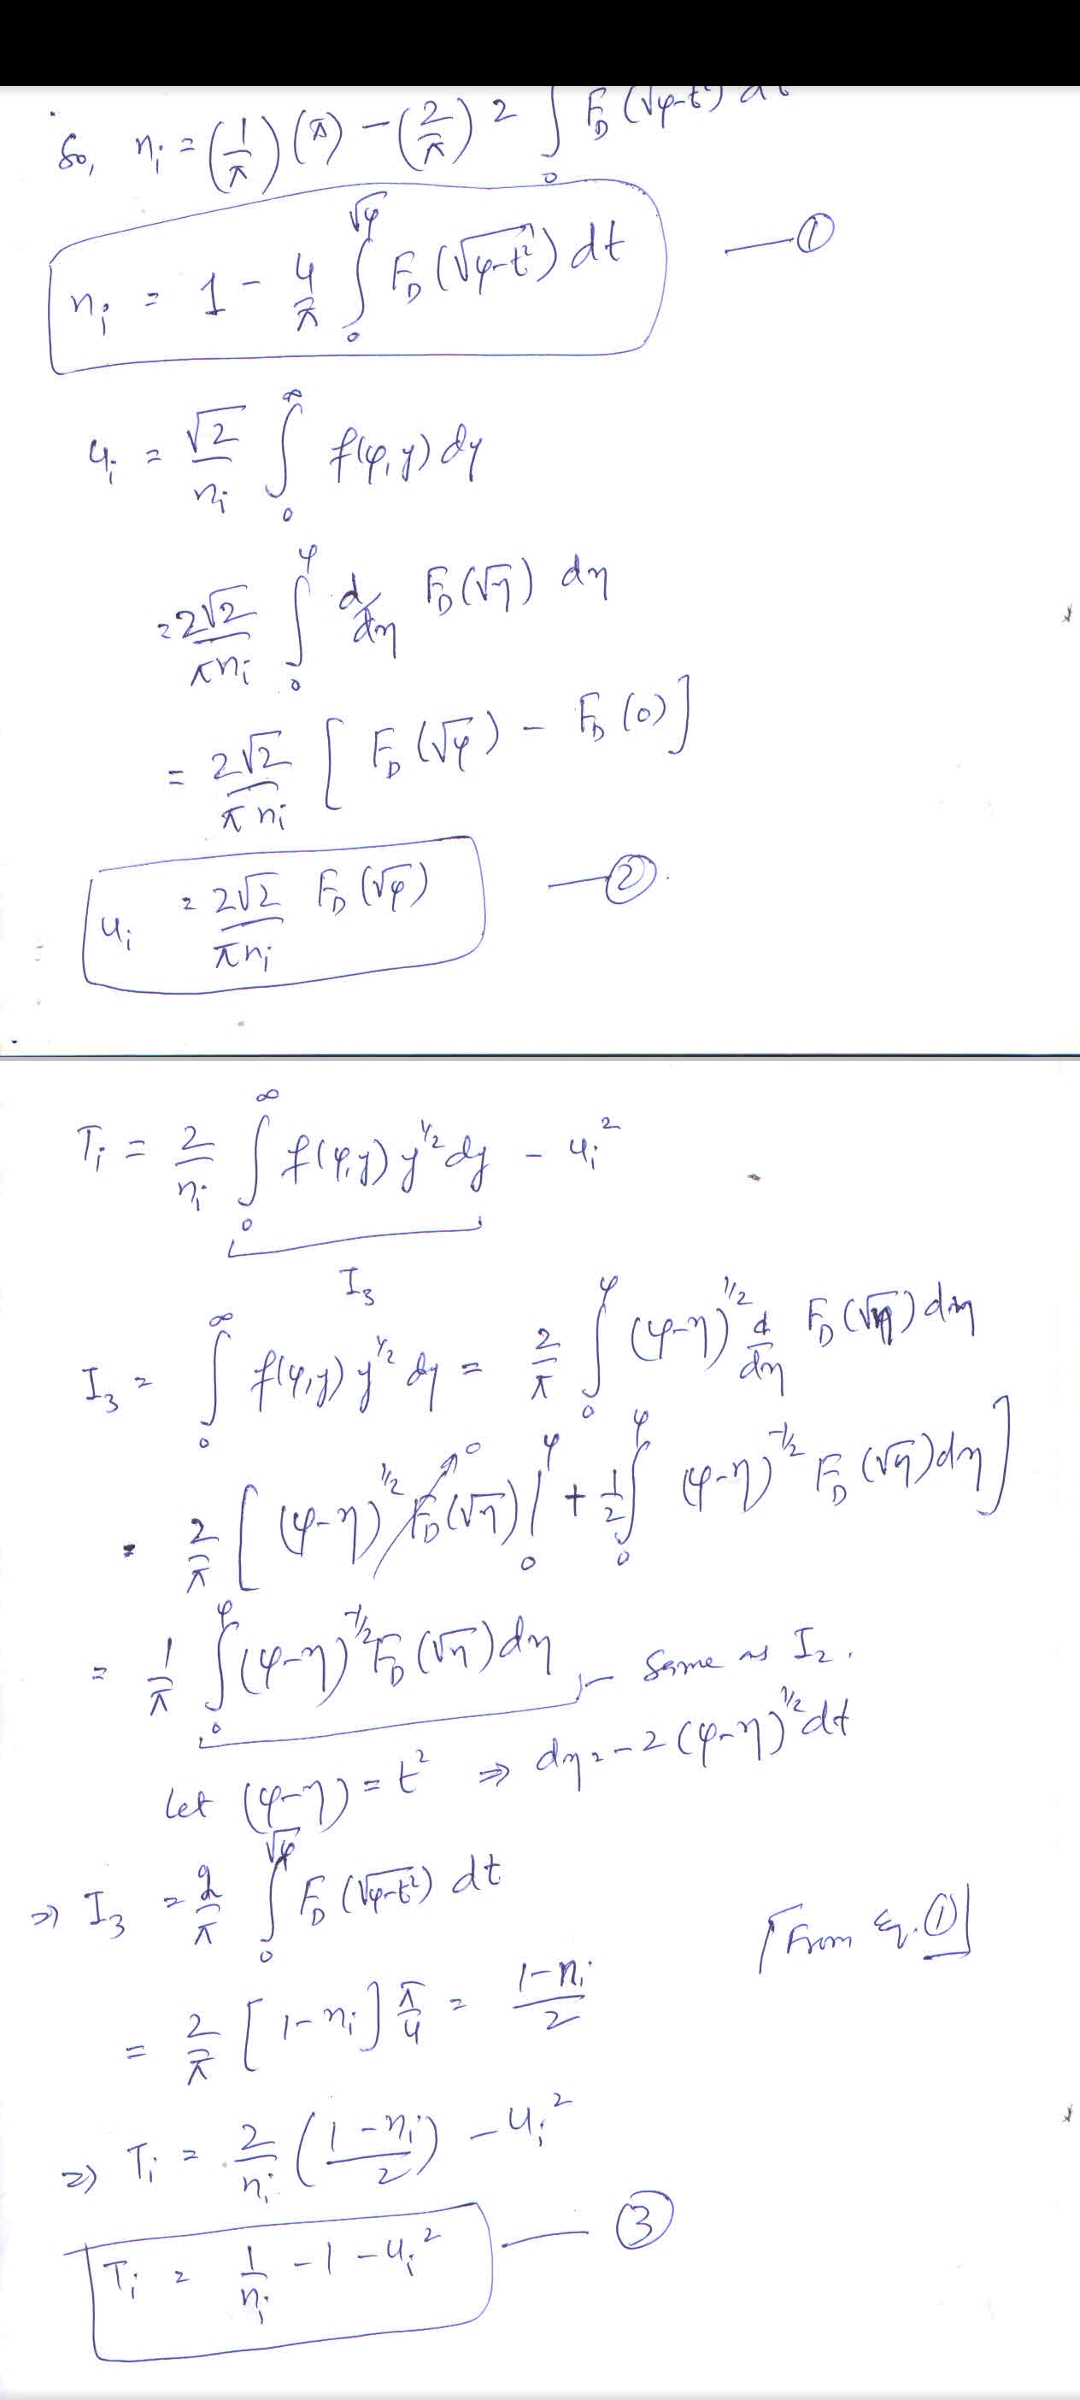 So, n_i = (1/π) (π) - (2/π) 2 ∫_0 F_D (√(φ-t²)) dt
n_i = 1 - 4/π ∫_0^√φ F_D (√(φ-t²)) dt —①
u_i = √2/n_i ∫_0^∞ f(φ,y) dy
= 2√2/πn_i ∫_0^φ d/dη F_D(√η) dη
= 2√2/πn_i [F_D(√φ) - F_D(0)]
u_i = 2√2/πn_i F_D(√φ) —②.
T_i = 2/n_i ∫_0^∞ f(φ,y) y^1/2 dy - u_i²
I_3
I_3 = ∫_0^∞ f(φ,y) y^1/2 dy = 2/π ∫_0^φ (φ-η)^1/2 d/dη F_D(√η) dη
= 2/π [(φ-η)^1/2 F_D(√η)|_0^φ → 0 + 1/2 ∫_0^φ (φ-η)^-1/2 F_D(√η) dη]
= 1/π ∫_0^φ (φ-η)^-1/2 F_D(√η) dη — Same as I_2.
Let (φ-η) = t² ⇒ dη = -2(φ-η)^1/2 dt
⇒ I_3 = 2/π ∫_0^√φ F_D(√(φ-t²)) dt
[From Eq. ①]
= 2/π [1-n_i] π/4 = (1-n_i)/2
⇒ T_i = 2/n_i ((1-n_i)/2) - u_i²
T_i = 1/n_i - 1 - u_i² —③